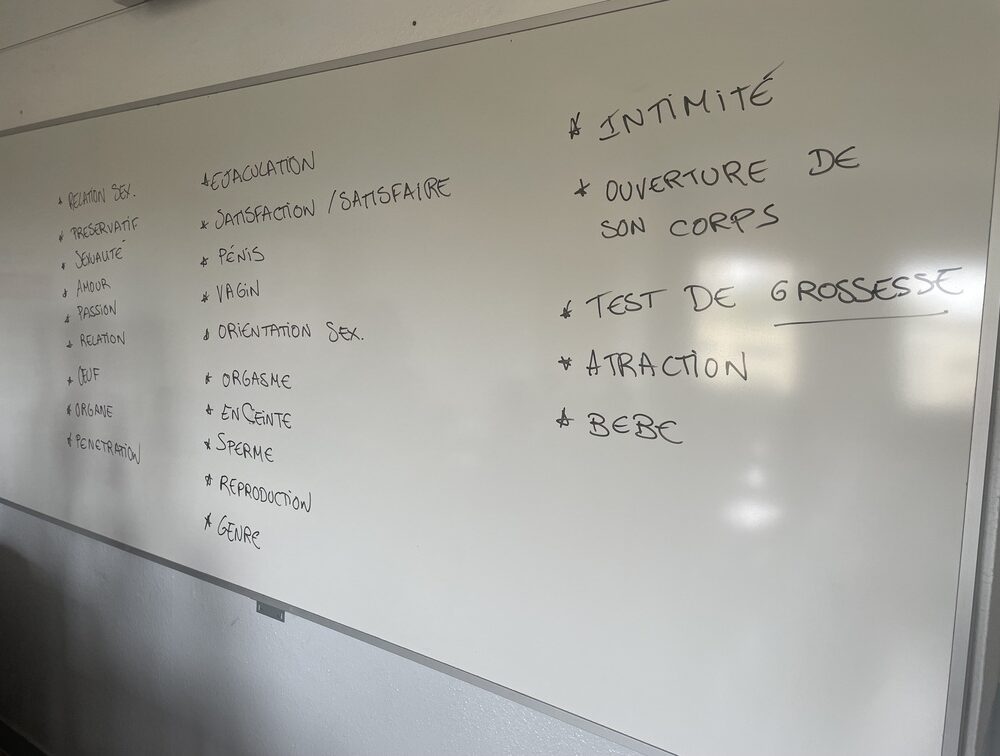 * RELATION SEX.
* PRESERVATIF
* SEXUALITÉ
* AMOUR
* PASSION
* RELATION
* ŒUF
* ORGANE
* PENETRATION
* EJACULATION
* SATISFACTION / SATISFAIRE
* PÉNIS
* VAGIN
* ORIENTATION SEX.
* ORGASME
* ENCEINTE
* SPERME
* REPRODUCTION
* GENRE
* INTIMITÉ
* OUVERTURE DE
SON CORPS
* TEST DE GROSSESSE
* ATRACTION
* BEBE